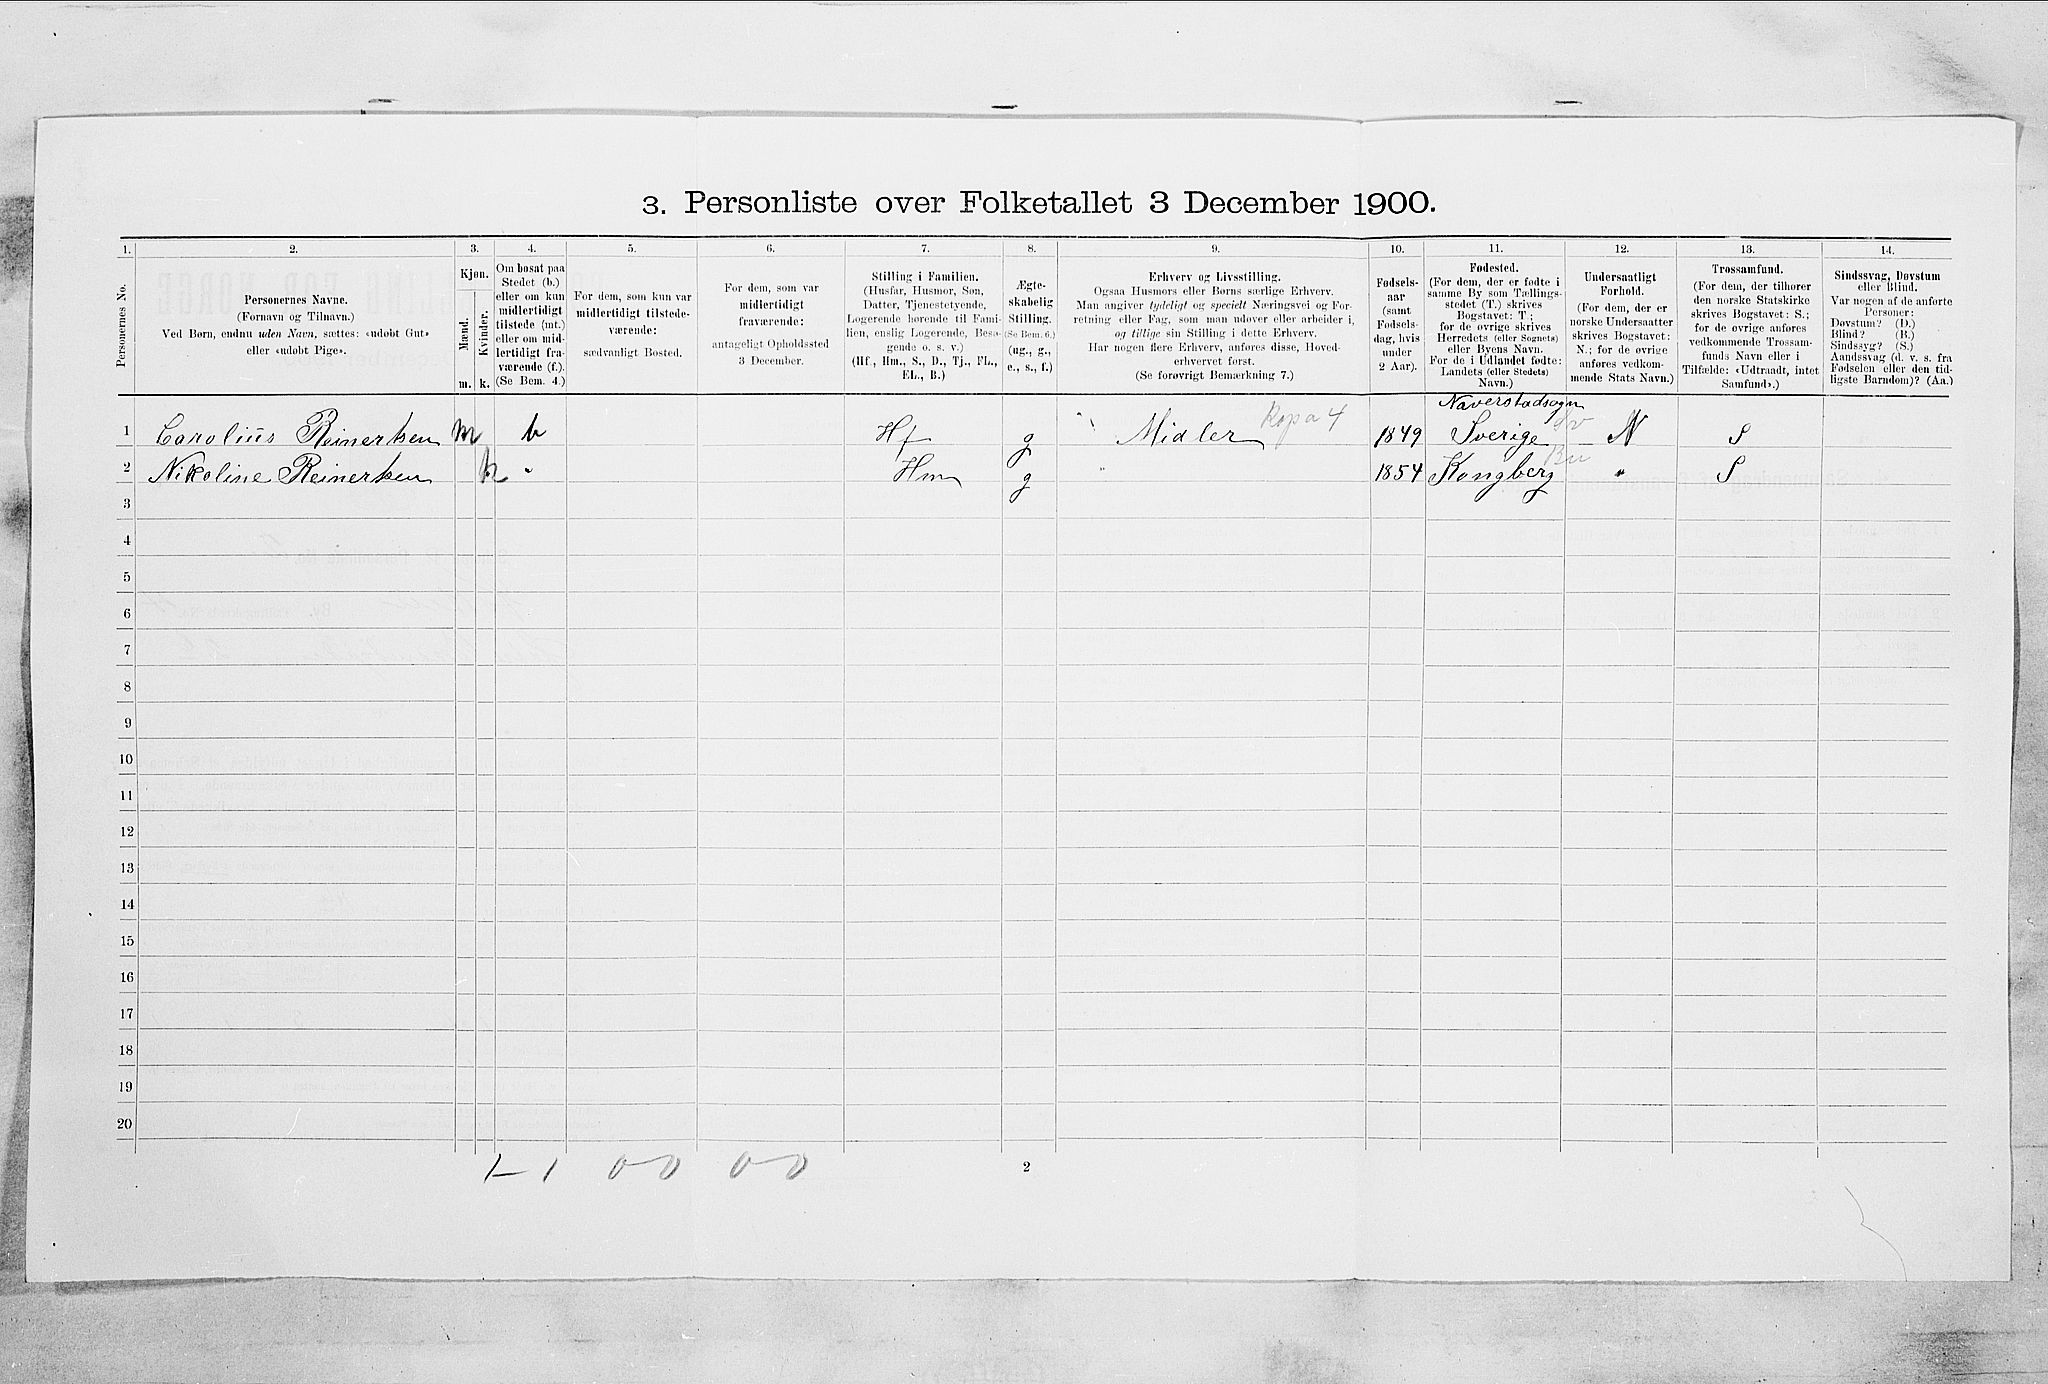 3. Personliste over Folketallet 3 December 1900.
1. 2. 3. 4. 5. 6. 7. 8. 9. 10. 11. 12. 13. 14.
Personernes No.
Personernes Navne.
(Fornavn og Tilnavn.)
Ved Børn, endnu uden Navn, sættes: «udøbt Gut»
eller «udøbt Pige».
Kjøn.
Mænd.
Kvinder.
m. k.
Om bosat paa
Stedet (b.)
eller om kun
midlertidigt
tilstede (mt.)
eller om mid-
lertidigt fra-
værende (f.).
(Se Bem. 4.)
For dem, som kun var
midlertidigt tilstede-
værende:
sædvanligt Bosted.
For dem, som var
midlertidigt
fraværende:
antageligt Opholdssted
3 December.
Stilling i Familien.
(Husfar, Husmor, Søn,
Datter, Tjenestetyende,
Logerende hørende til Fami-
lien, enslig Logerende, Besø-
gende o. s. v.)
(Hf., Hm., S., D., Tj., FL.,
EL., B.)
Ægte-
skabelig
Stilling.
(Se Bem. 6.)
(ug., g.,
e., s., f.)
Erhverv og Livsstilling.
Ogsaa Husmors eller Børns særlige Erhverv.
Man angiver tydeligt og specielt Næringsvei og For-
retning eller Fag, som man udøver eller arbeider i,
og tillige sin Stilling i dette Erhverv.
Har nogen flere Erhverv, anføres disse, Hoved-
erhvervet først.
(Se forøvrigt Bemærkning 7.)
Fødsels-
aar
(samt
Fødsels-
dag, hvis
under
2 Aar).
Fødested.
(For dem, der er fødte i
samme By som Tællings-
stedet (T.) skrives
Bogstavet: T;
for de øvrige skrives
Herredets (eller Sognets)
eller Byens Navn.
For de i Udlandet fødte:
Landets (eller Stedets)
Navn.)
Undersaatligt
Forhold.
(For dem, der er
norske Undersaatter
skrives Bogstavet:
N.; for de øvrige
anføres vedkom-
mende Stats Navn.)
Trossamfund.
(For dem, der tilhører
den norske Statskirke
skrives Bogstavet: S.;
for de øvrige anføres
vedkommende Trossam-
funds Navn eller i
Tilfælde: «Udtraadt, intet
Samfund».)
Sindssvag, Døvstum
eller Blind.
Var nogen af de anførte
Personer:
Døvstum? (D.)
Blind? (B.)
Sindssyg? (S.)
Aandssvag (d. v. s. fra
Fødselen eller den tid-
ligste Barndom)? (Aa.)
Naverstadsogn
1 Carolius Reinertsen m b Hf g Midler Kopa 4 1849 Sverige Sv N S
2 Nikoline Reinertsen k " Hm g 1854 Kongberg Bu " S
3
4
5
6
7
8
9
10
11
12
13
14
15
16
17
18
19
20
1-1 0 0 0 0
2